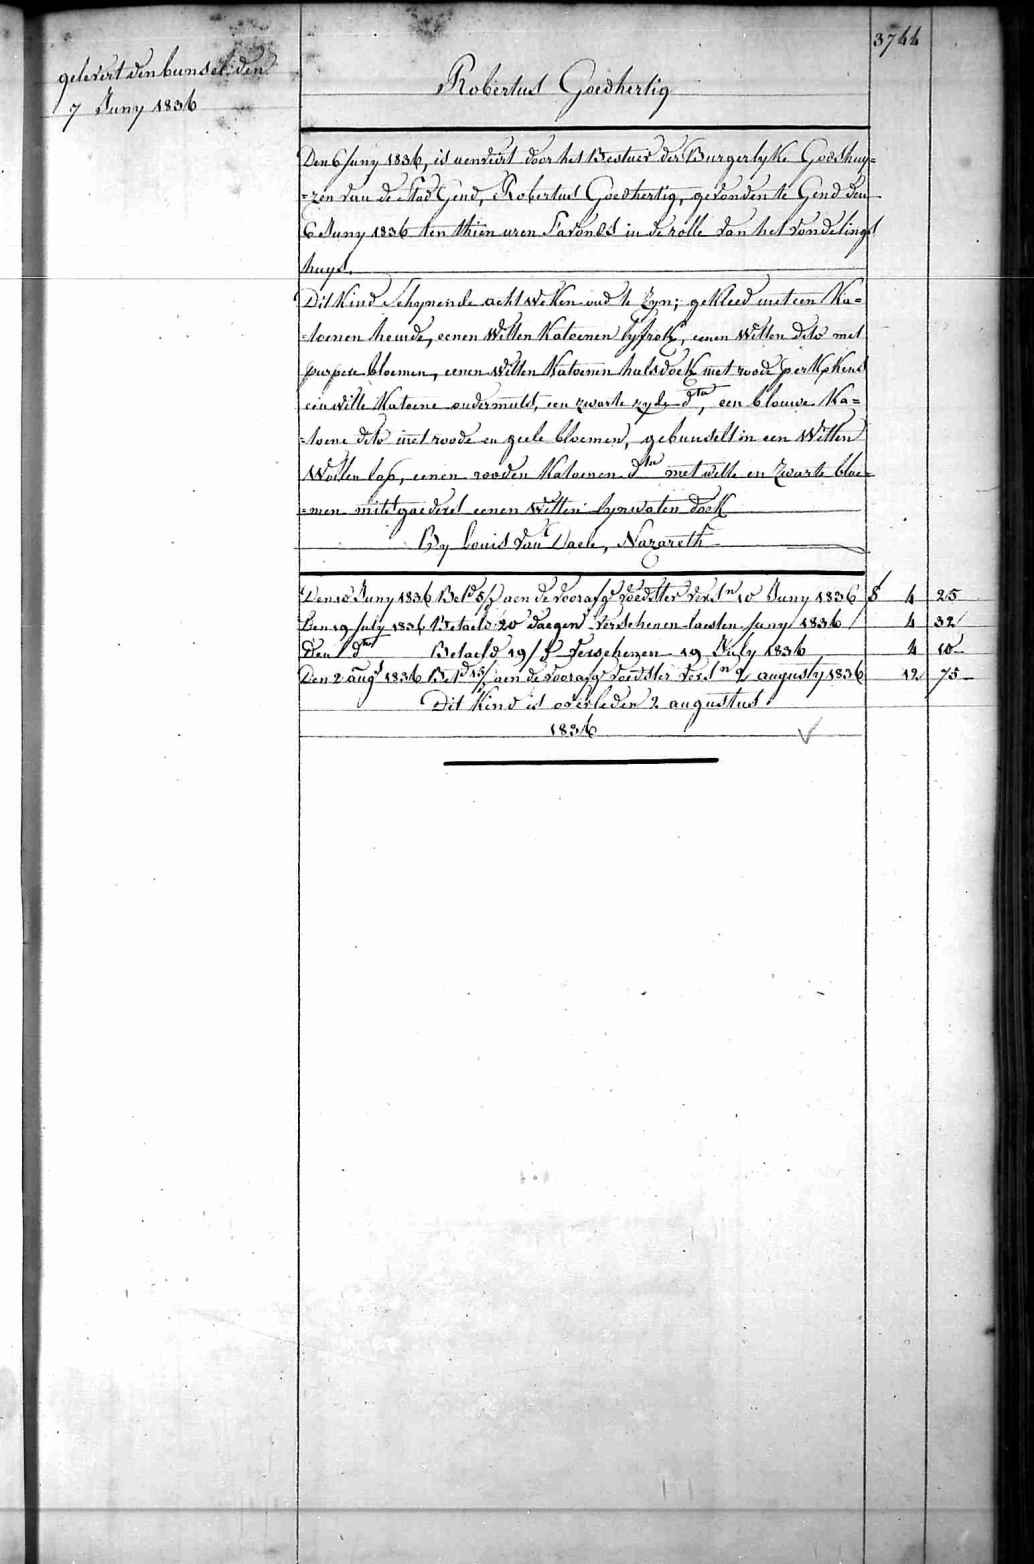 3744
gelevert den bunsel den
7 Juny 1836
Robertus Goedhertig
Den 6 Juny 1836, is aenveirt door het Bestuer der Burgerlyke Godshuy=
=zen van de Stad Gend, Robertus Goedhertig, gevonden te Gend den
6 Juny 1836 ten thien uren S'avonds in de rolle van het vondelings
huys.
Dit Kind Schynende acht weken oud te Zyn; gekleed met een Ka=
=toenen hemde, eenen Witten Katoenen lyfrok, eenen Witten dito met
purpere bloemen, eenen Witten Katoenen halsdoek met roode perkskens
een witte Katoene ondermuts, een zwarte zyde dto, een blauwe Ka=
=toene dito met roode en geele bloemen, gebunselt in een Witten
Wollen lap, eenen rooden Katoenen dto met witte en Zwarte bloe=
=men mitsgaeders eenen Witten lynwaten doek
By Louis Van Daele, Nazareth
Den 10 Juny 1836 Betd 5/ aen de voorafge voedster versn 10 Juny 1836 4 25
Den 19 July 1836 Betaeld 20 daegen verschenen laesten Juny 1836 4 32
Den dto Betaeld 19/ verschenen 19 July 1836 4 10
Den 2 augs 1836 Betd 15/ aen de voorafge voedster versn 2 augusty 1836 12 75
Dit Kind is overleden 2 augustus
1836